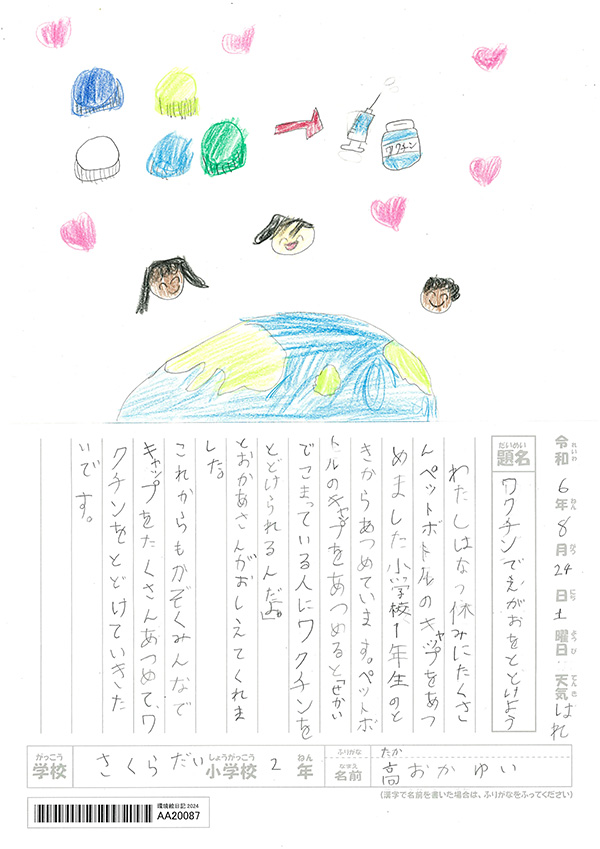 ワクチン
令和6年8月24日土曜日 天気はれ
れいわ ねん がつ にち ようび てんき
だいめい
題名
ワクチンでえがおをとどけよう
わたしはなつ休みにたくさ
んペットボトルのキャップをあつ
めました。小学校1年生のと
きからあつめています。ペットボ
トルのキャップをあつめると「せかい
でこまっている人にワクチンを
とどけられるんだよ。」
とおかあさんがおしえてくれま
した。
これからもかぞくみんなで
キャップをたくさんあつめて、ワ
クチンをとどけていきた
いです。
がっこう しょうがっこう ねん
学校 さくらだい小学校 2年
ふりがな たか
なまえ
名前 高おかゆい
(漢字で名前を書いた場合は、ふりがなをふってください)
環境絵日記 2024
AA20087